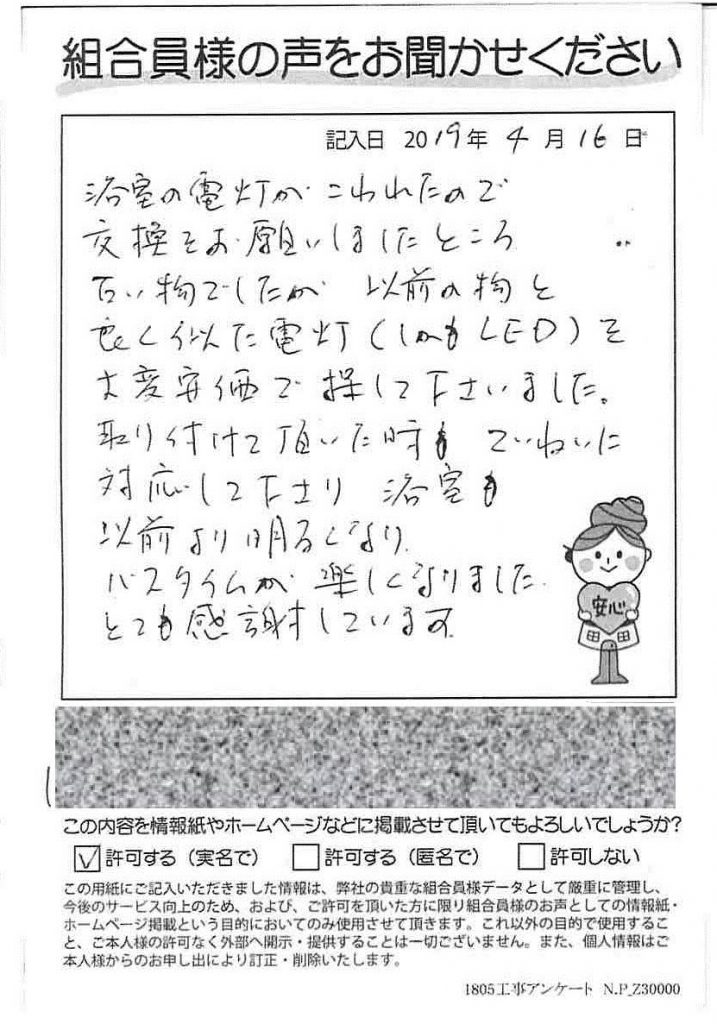 組合員様の声をお聞かせください
記入日 2019年 4月 16日
浴室の電灯が こわれたので
交換をお願いしましたところ
古い物でしたが 以前の物と
良く似た電灯(しかもLED)を
大変安価で 探して下さいました。
取り付けて頂いた時も ていねいに
対応して下さり 浴室も
以前より明るくなり
バスタイムが 楽しくなりました
とても感謝しています。
安心
この内容を情報紙やホームページなどに掲載させて頂いてもよろしいでしょうか?
許可する(実名で) 許可する(匿名で) 許可しない
この用紙にご記入いただきました情報は、弊社の貴重な組合員様データとして厳重に管理し、
今後のサービス向上のため、および、ご許可を頂いた方に限り組合員様のお声としての情報紙・
ホームページ掲載という目的においてのみ使用させて頂きます。これ以外の目的で使用するこ
と、ご本人様の許可なく外部へ開示・提供することは一切ございません。また、個人情報はご
本人様からのお申し出により訂正・削除いたします。
1805工事アンケート N.P_Z30000